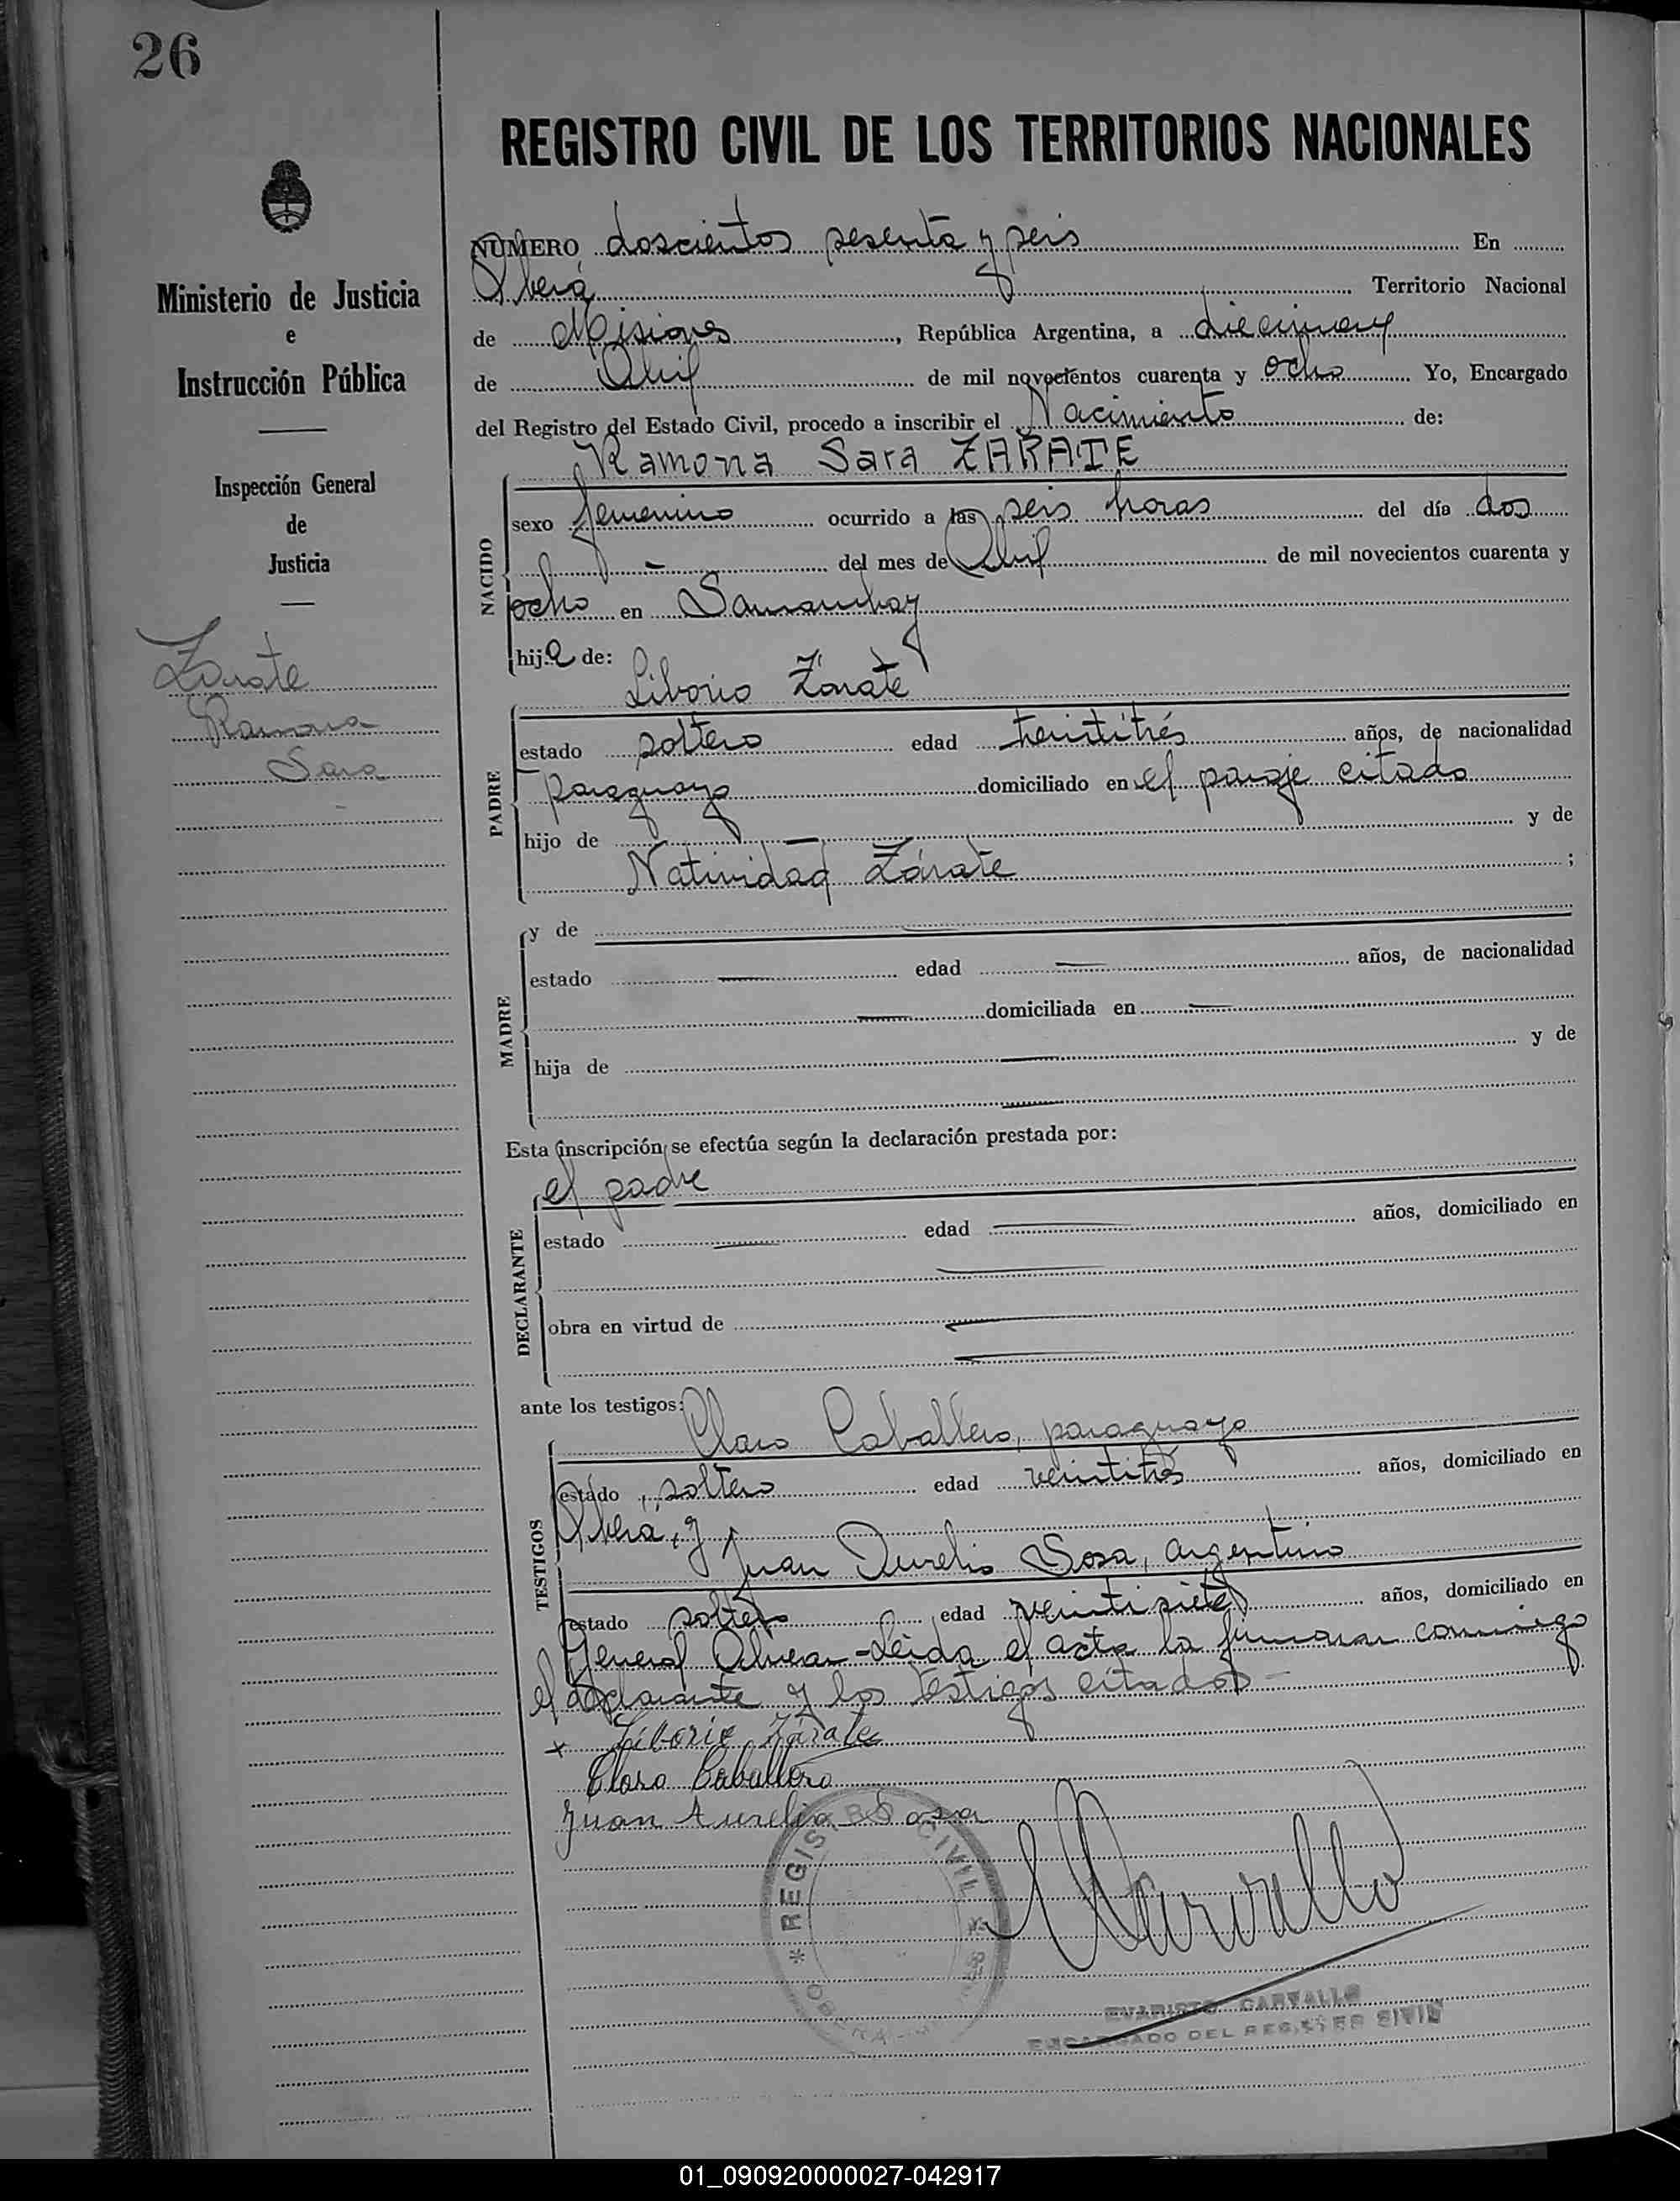 26
REGISTRO CIVIL DE LOS TERRITORIOS NACIONALES
Ministerio de Justicia
e
Instrucción Pública
Inspección General
de
Justicia
Zarate
Ramona
Sara
NUMERO doscientos sesenta y seis En
Oberá Territorio Nacional
de Misiones, República Argentina, a diecinueve
de Abril de mil novecientos cuarenta y ocho Yo, Encargado
del Registro del Estado Civil, procedo a inscribir el Nacimiento de:
Ramona Sara ZARATE
NACIDO
sexo femenino ocurrido a las seis horas del día dos
del mes de Abril de mil novecientos cuarenta y
ocho en Samambay
hija de:
Liborio Zárate
PADRE
estado soltero edad treintitrés años, de nacionalidad
paraguaya domiciliado en el paraje citado
hijo de — y de
Natividad Zárate ;
MADRE
y de —
estado — edad — años, de nacionalidad
— domiciliada en —
hija de — y de
—
Esta inscripción se efectúa según la declaración prestada por:
el padre
DECLARANTE
estado — edad — años, domiciliado en
—
obra en virtud de —
—
ante los testigos:
Claro Caballero, paraguayo
TESTIGOS
estado soltero edad veintitrés años, domiciliado en
Oberá, y
Juan Aurelio Sosa, argentino
estado soltero edad veintisiete años, domiciliado en
General Alvear - Leída el acta la firmaron conmigo
el declarante y los testigos citados -
x Liborio Zárate
Claro Caballero
Juan Aurelio Sosa
* REGISTRO CIVIL *
OBERA
Carvallo
EVARISTO CARVALLO
ENCARGADO DEL REGISTRO CIVIL
01_090920000027-042917